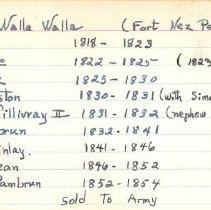 Walla Walla (Fort Nez Pe
1818 - 1823
1822 - 1825 (1823
1825 - 1830
ston 1830 - 1831 (with Simo
illivray II 1831 - 1832 (nephew
brun 1832 - 1841
nlay. 1841 - 1846
ean 1846 - 1852
Pambrun 1852 - 1854
sold To Army